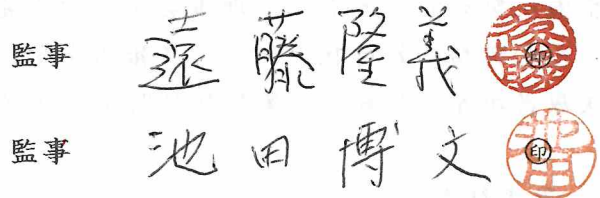 監事 遠藤隆義 ㊞
監事 池田博文 ㊞